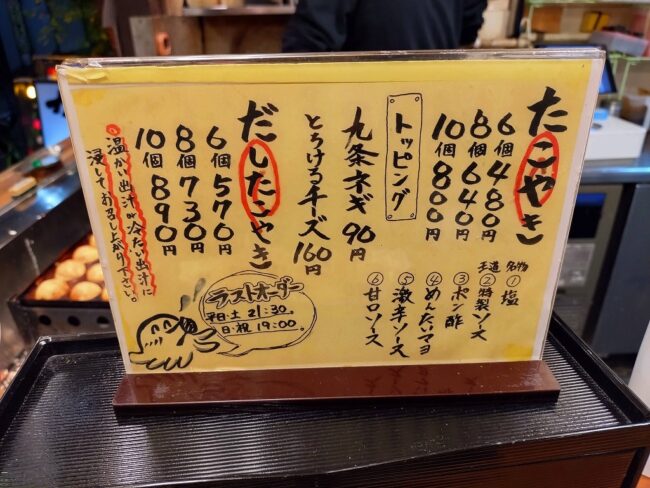 たこやき
6個 480円
8個 640円
10個 800円
名物 ① 塩
王道 ② 特製ソース
③ ポン酢
④ めんたいマヨ
⑤ 激辛ソース
⑥ 甘口ソース
トッピング
九条ネギ 90円
とろけるチーズ 160円
だしたこやき
6個 570円
8個 730円
10個 890円
温かい出汁か冷たい出汁に
浸してお召し上がり下さい。
ラストオーダー
平日・土 21:30
日・祝 19:00